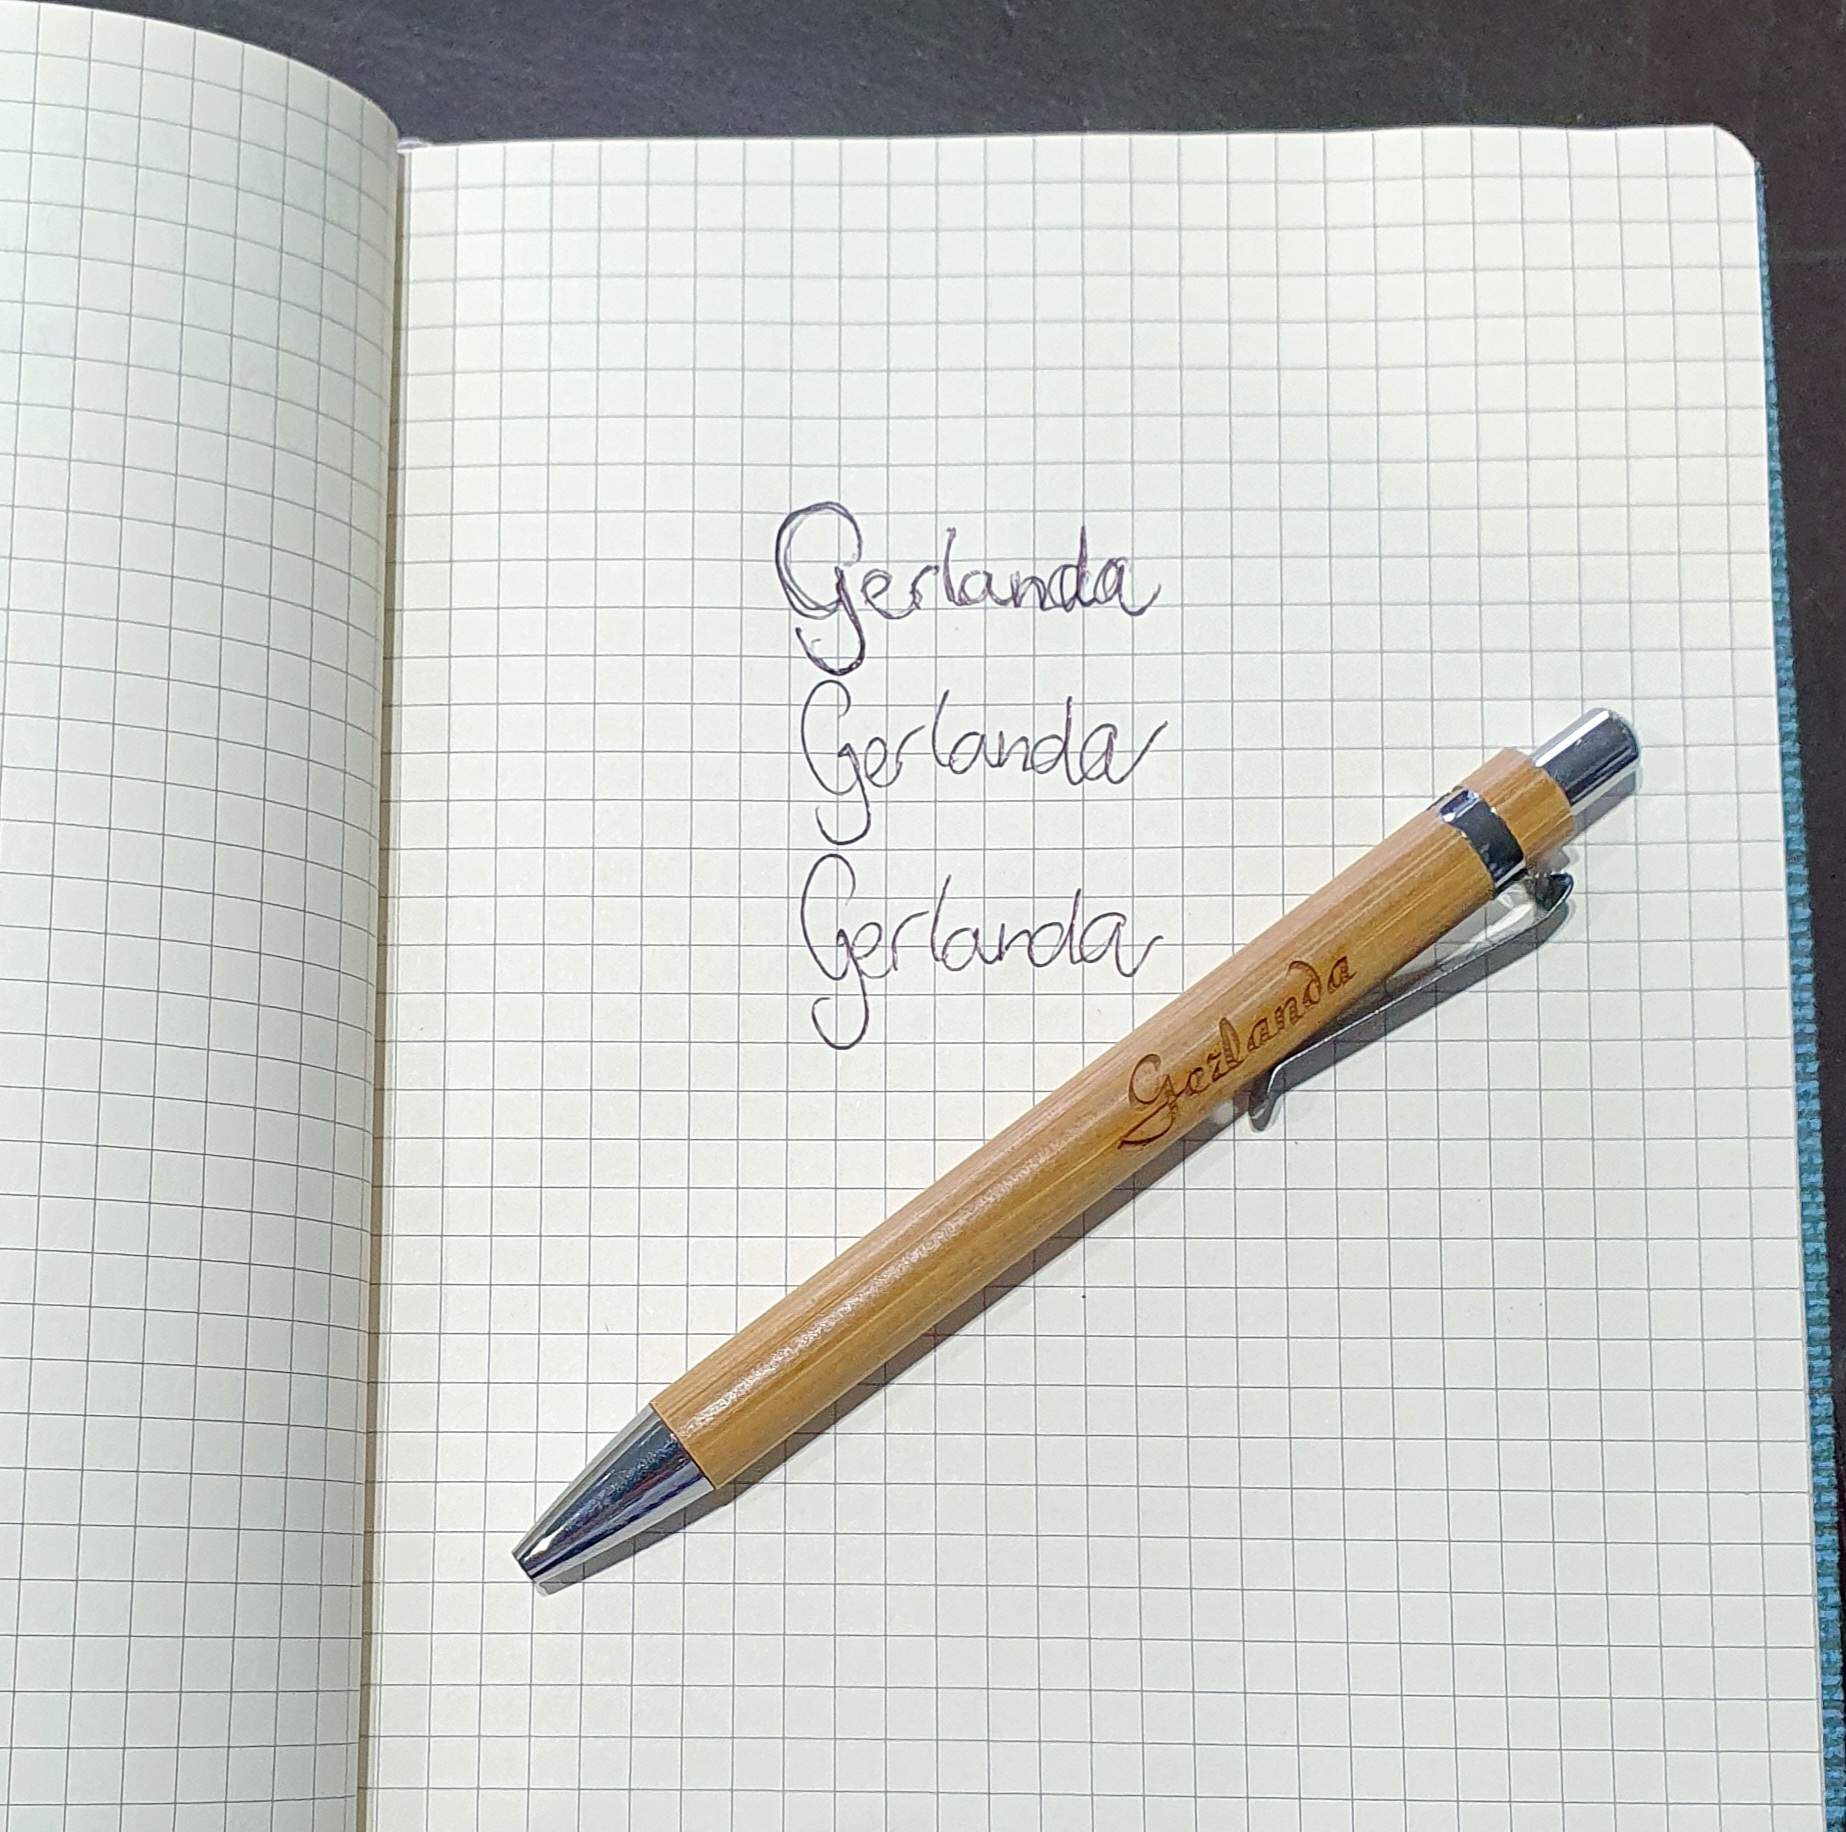 Gerlanda
Gerlanda
Gerlanda
Gerlanda